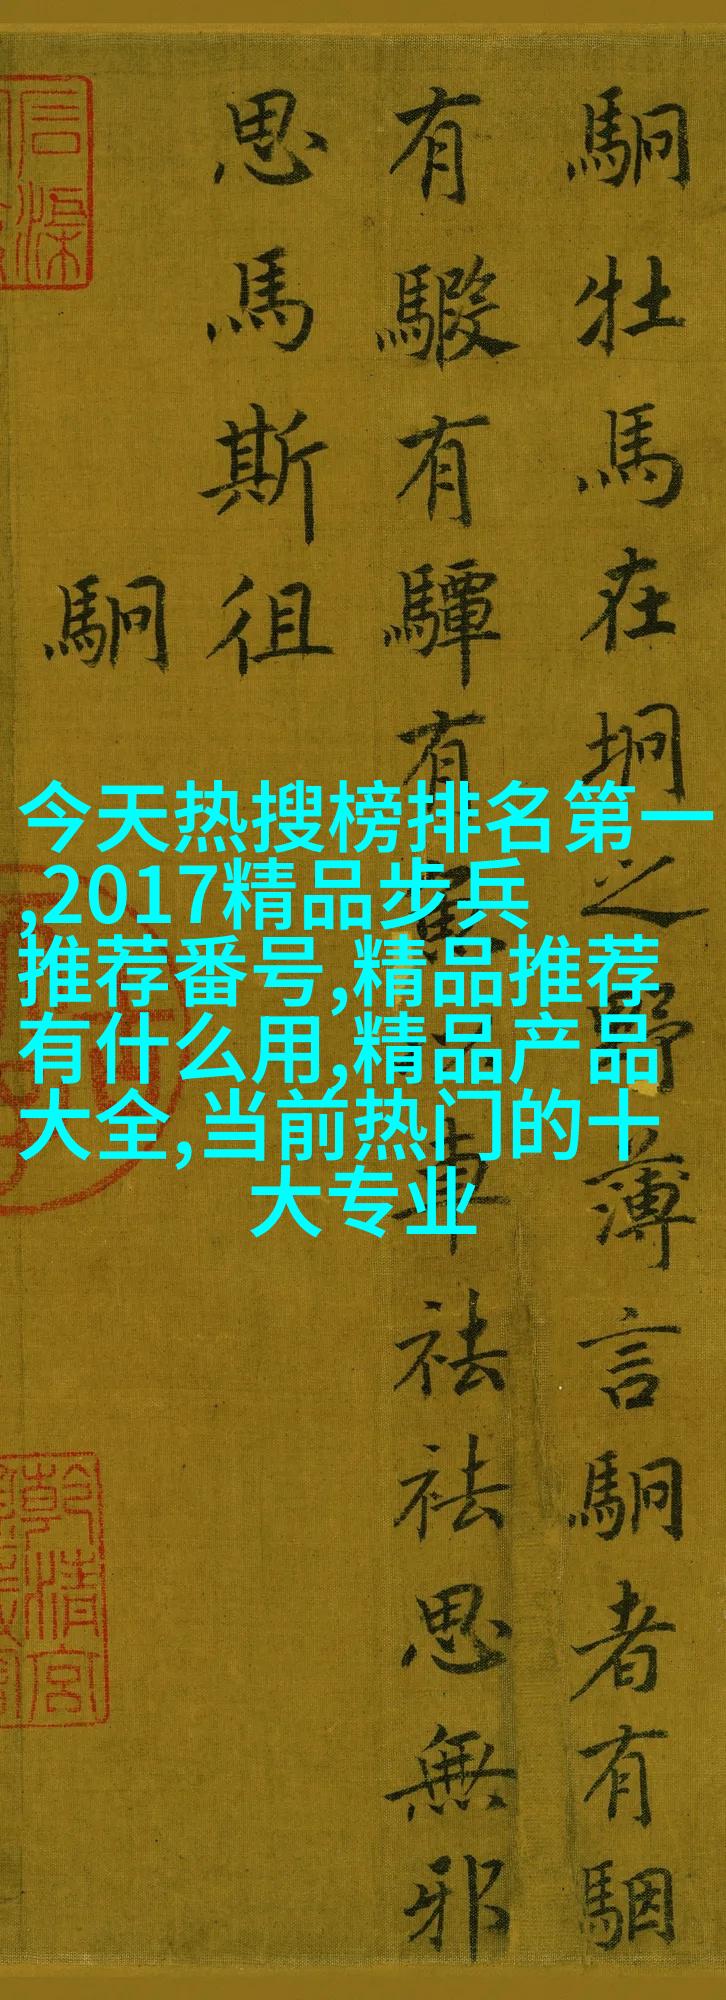 駉牡馬在坰之野薄言駉者有駰
有騢有驔有魚以車祛祛思無邪
思馬斯徂
駉
今天热搜榜排名第一
,2017精品步兵
推荐番号,精品推荐
有什么用,精品产品
大全,当前热门的十
大专业
乾清宮